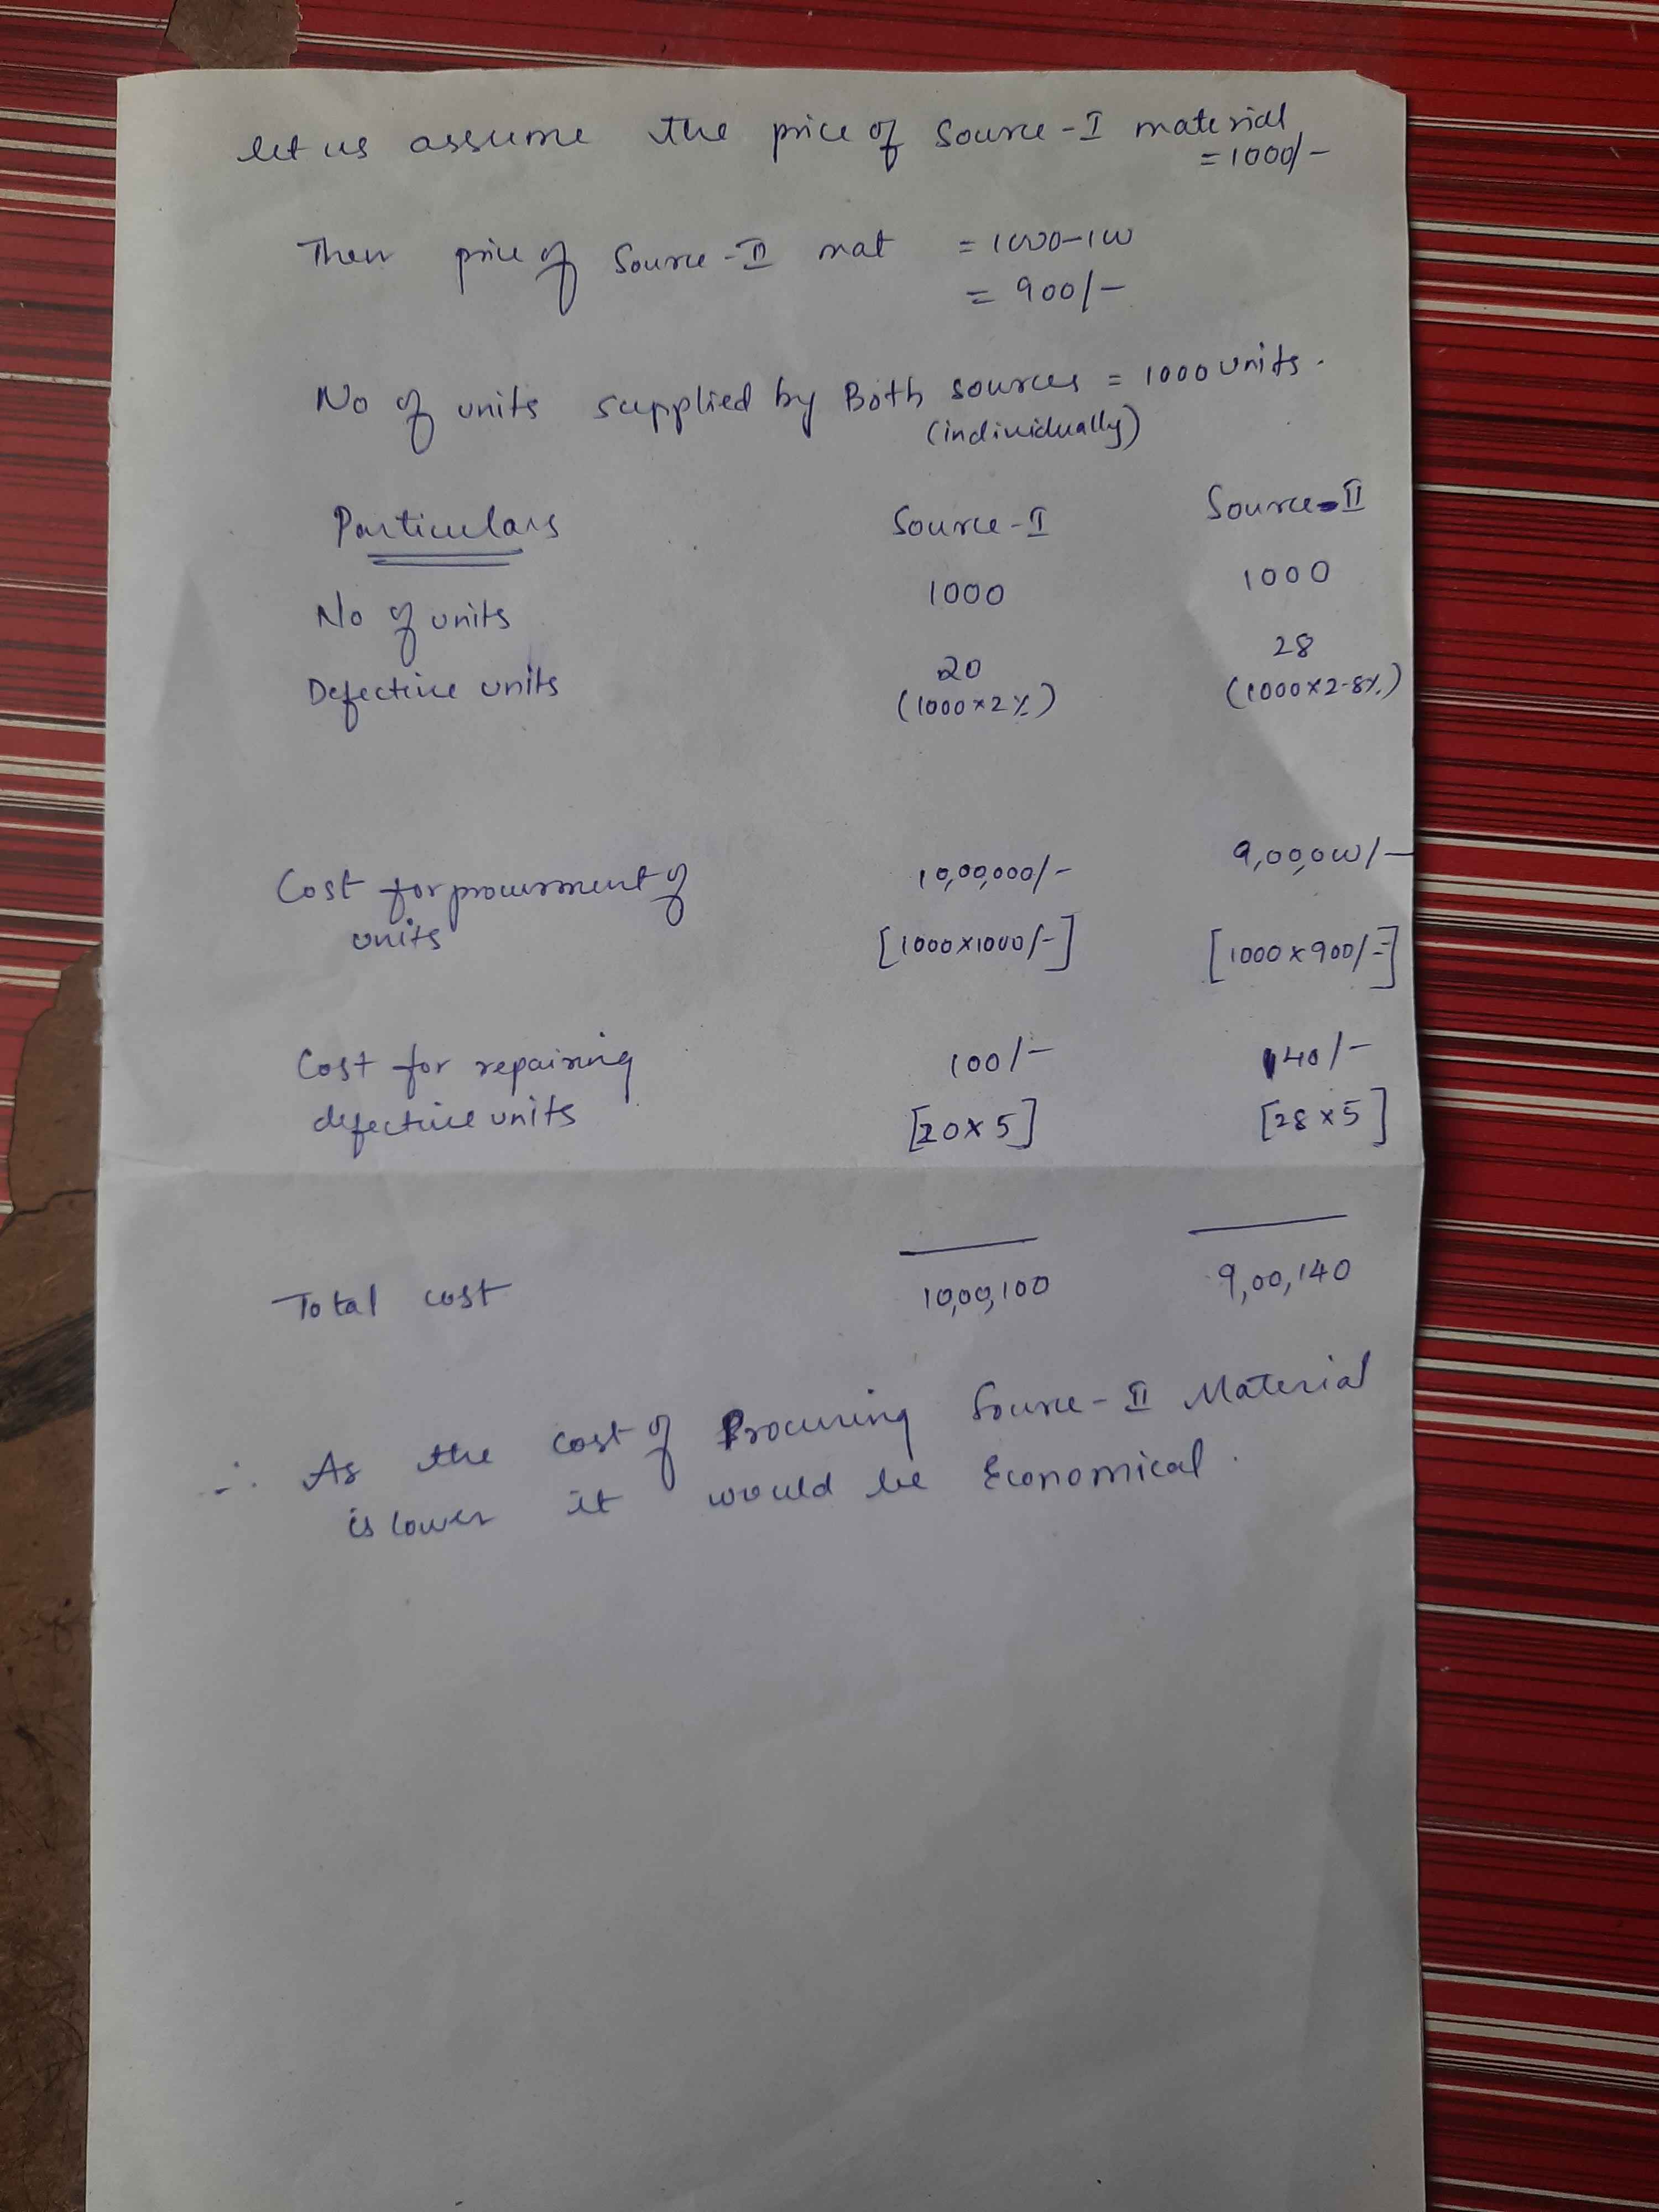 let us assume the price of Source-I material
= 1000/-
Then price of Source-II mat = 1000-100
= 900/-
No of units supplied by Both sources = 1000 units.
(individually)
Particulars Source-I Source-II
No of units 1000 1000
Defective units 20 28
(1000×2%) (1000×2.8%)
Cost for procurment of 10,00,000/- 9,00,000/-
units [1000×1000/-] [1000×900/-]
Cost for repairing 100/- 140/-
defective units [20×5] [28×5]
Total cost 10,00,100 9,00,140
∴ As the cost of Procuring Source-II Material
is lower it would be Economical.